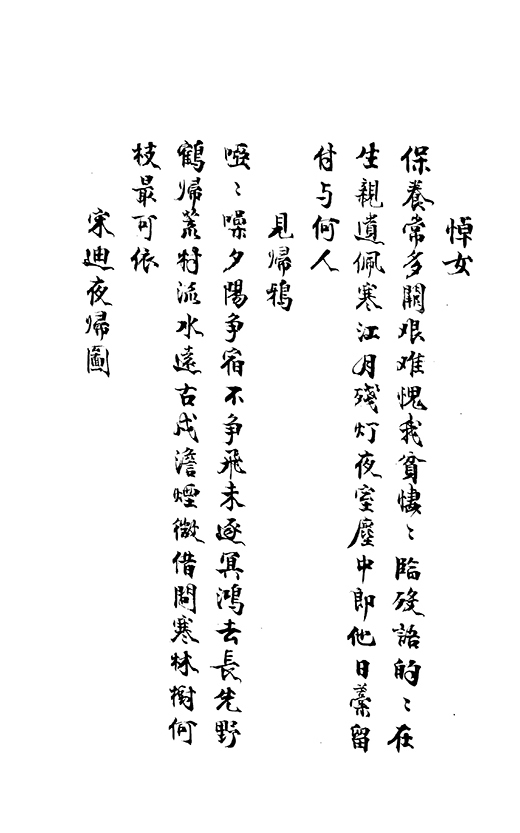 悼女
保養常多闕艰难愧我貧悽〻臨殁語的〻在
生親遺佩寒江月殘灯夜室塵中郎他日藁留
付与何人
見歸鴉
啞〻噪夕陽争宿不争飛未逐冥鴻去長先野
鶴歸荒村流水遠古戍澹煙微借問寒林樹何
枝最可依
宋迪夜歸圖